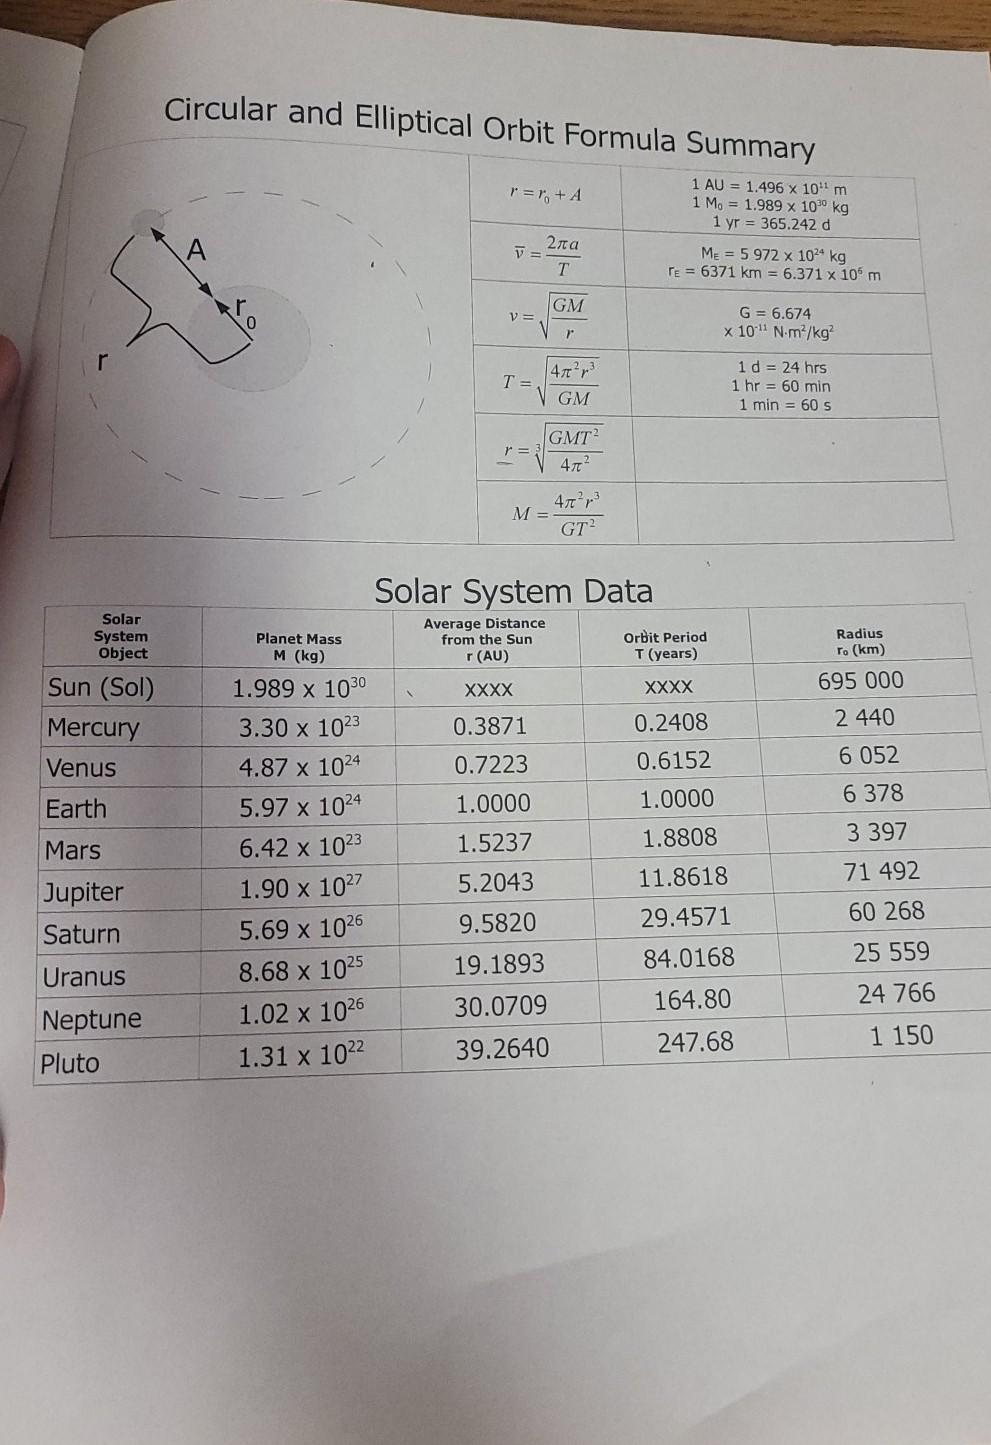 Circular and Elliptical Orbit Formula Summary
A
r₀
r
r = r₀ + A
1 AU = 1.496 x 10¹¹ m
1 M₀ = 1.989 x 10³⁰ kg
1 yr = 365.242 d
v̅ = 2πa / T
Mᴇ = 5 972 x 10²⁴ kg
rᴇ = 6371 km = 6.371 x 10⁶ m
v = √(GM / r)
G = 6.674
x 10⁻¹¹ N·m²/kg²
T = √(4π²r³ / GM)
1 d = 24 hrs
1 hr = 60 min
1 min = 60 s
r = ³√(GMT² / 4π²)
M = 4π²r³ / GT²
Solar System Data
Solar System Object | Planet Mass M (kg) | Average Distance from the Sun r (AU) | Orbit Period T (years) | Radius r₀ (km)
Sun (Sol) 1.989 x 10³⁰ XXXX XXXX 695 000
Mercury 3.30 x 10²³ 0.3871 0.2408 2 440
Venus 4.87 x 10²⁴ 0.7223 0.6152 6 052
Earth 5.97 x 10²⁴ 1.0000 1.0000 6 378
Mars 6.42 x 10²³ 1.5237 1.8808 3 397
Jupiter 1.90 x 10²⁷ 5.2043 11.8618 71 492
Saturn 5.69 x 10²⁶ 9.5820 29.4571 60 268
Uranus 8.68 x 10²⁵ 19.1893 84.0168 25 559
Neptune 1.02 x 10²⁶ 30.0709 164.80 24 766
Pluto 1.31 x 10²² 39.2640 247.68 1 150